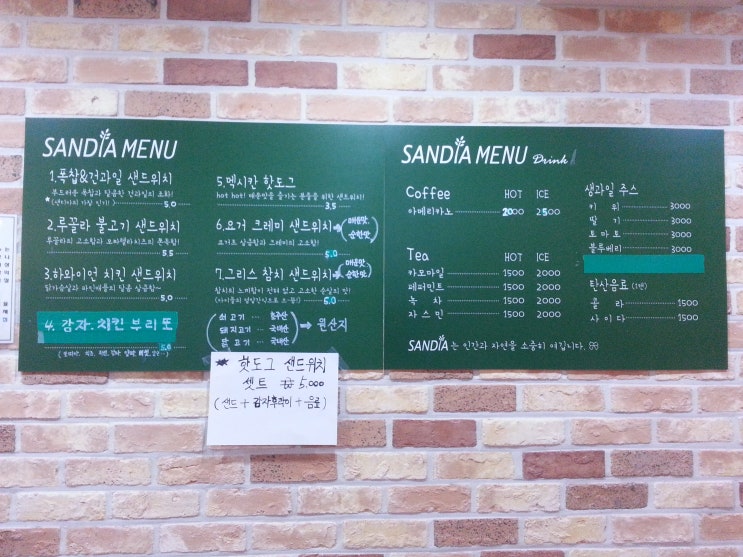 SANDIA MENU
1.폭찹&견과일 샌드위치
부드러운 폭찹과 달콤한 견과일의 조화!
5.0
2.루꼴라 불고기 샌드위치
루꼴라의 고소함과 모짜렐라치즈의 쫀쫀함!
5.5
3.하와이언 치킨 샌드위치
닭가슴살과 파인애플의 달콤 상큼함~
5.0
4. 감자.치킨 부리또
5.0
5.멕시칸 핫도그
hot hot! 매운맛을 즐기는 분들을 위한 샌드위치!
3.5
6.요거 크레미 샌드위치 (매콤맛, 순한맛)
요거트 상큼함과 크레미의 고소함!
5.0
7.그리스 참치 샌드위치 (매콤맛, 순한맛)
참치의 느끼함이 전혀 없고 고소한 웰빙의 맛!
5.0
쇠고기 … 호주산
돼지고기 … 국내산
닭고기 … 국내산
→ 원산지
★ 핫도그 샌드위치
셋트 5,000
(샌드 + 감자후라이 + 음료)
SANDIA MENU Drink
Coffee HOT ICE
아메리카노 2000 2500
Tea HOT ICE
카모마일 1500 2000
페퍼민트 1500 2000
녹차 1500 2000
자스민 1500 2000
SANDIA는 인간과 자연을 소중히 여깁니다.
생과일 주스
키위 3000
딸기 3000
토마토 3000
블루베리 3000
탄산음료 (1캔)
콜라 1500
사이다 1500